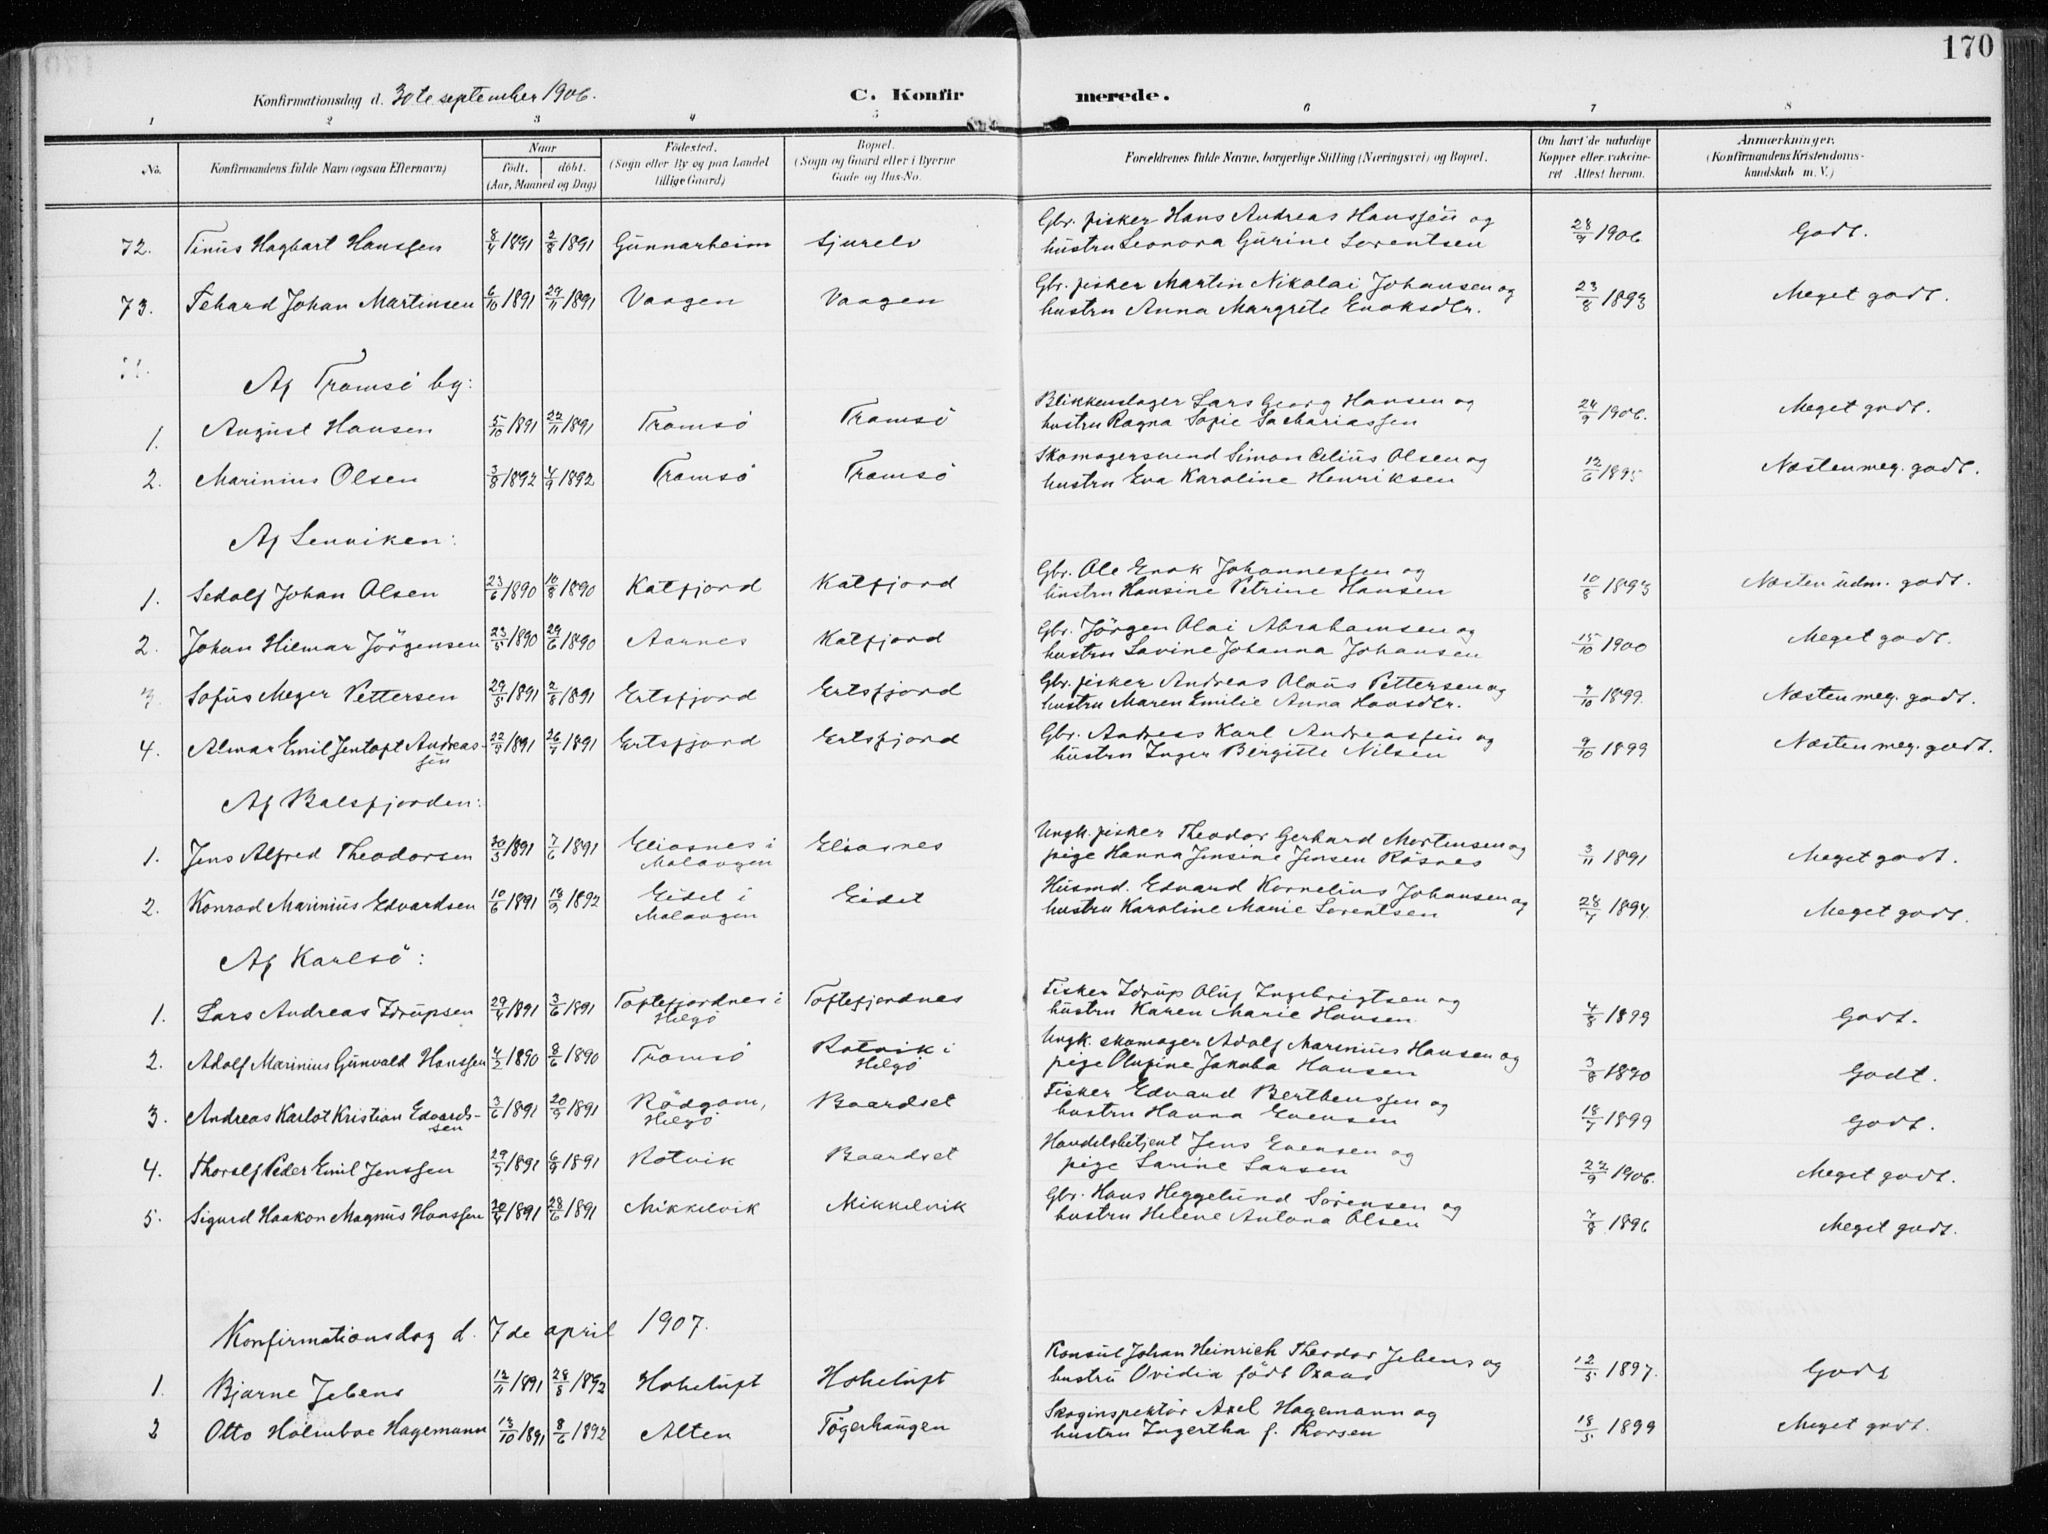 170
Konfirmationsdag d. 30te september 1906. C. Konfirmerede.
1 2 3 4 5 6 7 8
No. Konfirmandens fulde Navn (ogsaa Efternavn) Naar født. døbt. (Aar, Maaned og Dag) Fødested. (Sogn eller By og paa Landet tillige Gaard) Bopæl. (Sogn og Gaard eller i Byerne Gade og Hus-No. Forældrenes fulde Navne, borgerlige Stilling (Næringsvei) og Bopæl. Om havt de naturlige Kopper eller vakcineret Attest herom. Anmærkninger. (Konfirmandens Kristendomskundskab m. V.)
72. Tinus Hagbart Hanssen 8/4 1891 2/8 1891 Gunnarheim Sjurelv Gbr. fisker Hans Andreas Hanssen og
hustru Leonora Gurine Lorentsen 28/9 1906 Godt.
73. Fehard Johan Martinsen 6/10 1891 29/11 1891 Vaagen Vaagen Gbr. fisker Martin Nikolai Johansen og
hustru Anna Margrete Enoksdtr. 23/8 1893 Meget godt.
Af Tromsö by:
1. August Hansen 5/10 1891 22/11 1891 Tromsö Tromsö Blikkenslager Lars Georg Hansen og
hustru Ragna Sofie Sachariassen 24/9 1906. Meget godt.
2. Marinius Olsen 3/8 1892 4/9 1892 Tromsö Tromsö Skomagersvend Simon Celius Olsen og
hustru Eva Karoline Henriksen 12/6 1895 Næsten meg. godt.
Af Lenviken:
1. Sedolf Johan Olsen 23/6 1890 10/8 1890 Katfjord Katfjord Gbr. Ole Enok Johannessen og
hustru Hansine Petrine Hansen 10/8 1893 Næsten udm. godt.
2. Johan Hilmar Jörgensen 23/5 1890 29/6 1890 Aarnes Katfjord Gbr. Jörgen Olai Abrahamsen og
hustru Lavine Johanna Johansen 15/10 1900 Meget godt.
3. Sofus Meyer Pettersen 29/5 1891 2/8 1891 Ertsfjord Ertsfjord Gbr. fisker Andreas Olaus Pettersen og
hustru Maren Emilie Anna Hansdtr. 9/10 1899. Næsten meg. godt.
4. Almar Emil Jentoft Andreassen 22/3 1891 26/7 1891 Ertsfjord Ertsfjord Gbr. Andreas Karl Andreassen og
hustru Inger Birgitte Nilsen 9/10 1899 Næsten meg. godt.
Af Balsfjorden:
1. Jens Alfred Theodorsen 20/3 1891 7/6 1891 Eliasnes i Malangen Eliasnes Ungk. fisker Theodor Gerhard Mortensen og
pige Hanna Jensine Jensen Rösnes 3/11 1891 Meget godt.
2. Konrad Marinius Edvardsen 10/6 1891 1892 Eidet i Malangen Eidet Husmd. Edvard Kornelius Johansen og
hustru Karoline Marie Lorentsen 28/7 1894. Meget godt.
Af Karlsö:
1. Lars Andreas Idrupsen 29/4 1891 3/6 1891 Toftefjordnes i Helgö Toftefjordnes Fisker Idrup Oluf Ingebrigtsen og
hustru Karen Marie Hansen. 4/8 1899 Godt.
2. Adolf Marinius Gunvald Hanssen 4/2 1890 8/6 1890 Tromsö Rotvik i Helgö Ungk. skomager Adolf Marinius Hansen og
pige Olufine Jakoba Hansen 3/8 1890 Godt.
3. Andreas Karlot Kristian Edvardssen 3/6 1891 20/9 1891 Rödgam, Helgö Baardset Fisker Edvard Berthenssen og
hustru Hanna Evensen 18/7 1899 Godt.
4. Thoralf Peder Emil Jenssen 29/7 1891 6/9 1891 Rotvik Baardset Handelsbetjent Jens Evensen og
pige Sarine Larsen 22/9 1906. Meget godt.
5. Sigurd Haakon Magnus Hanssen 20/4 1891 28/6 1891 Mikkelvik Mikkelvik Gbr. Hans Heggelund Sörensen og
hustru Helene Antona Olsen 7/8 1896 Meget godt.
Konfirmationsdag d. 7de april 1907.
1. Bjarne Jebens 12/11 1891 28/8 1892 Hoheluft Hoheluft Konsul Johan Heinrich Theodor Jebens og
hustru Ovidia födt 12/5 1897. Godt
2 Otto Holmboe Hagemann 13/10 1891 8/6 1892 Alten Tögerhaugen Skoginspektör Axel Hagemann og
hustru Ingertha f. Thorsen 18/5 1899 Meget godt.